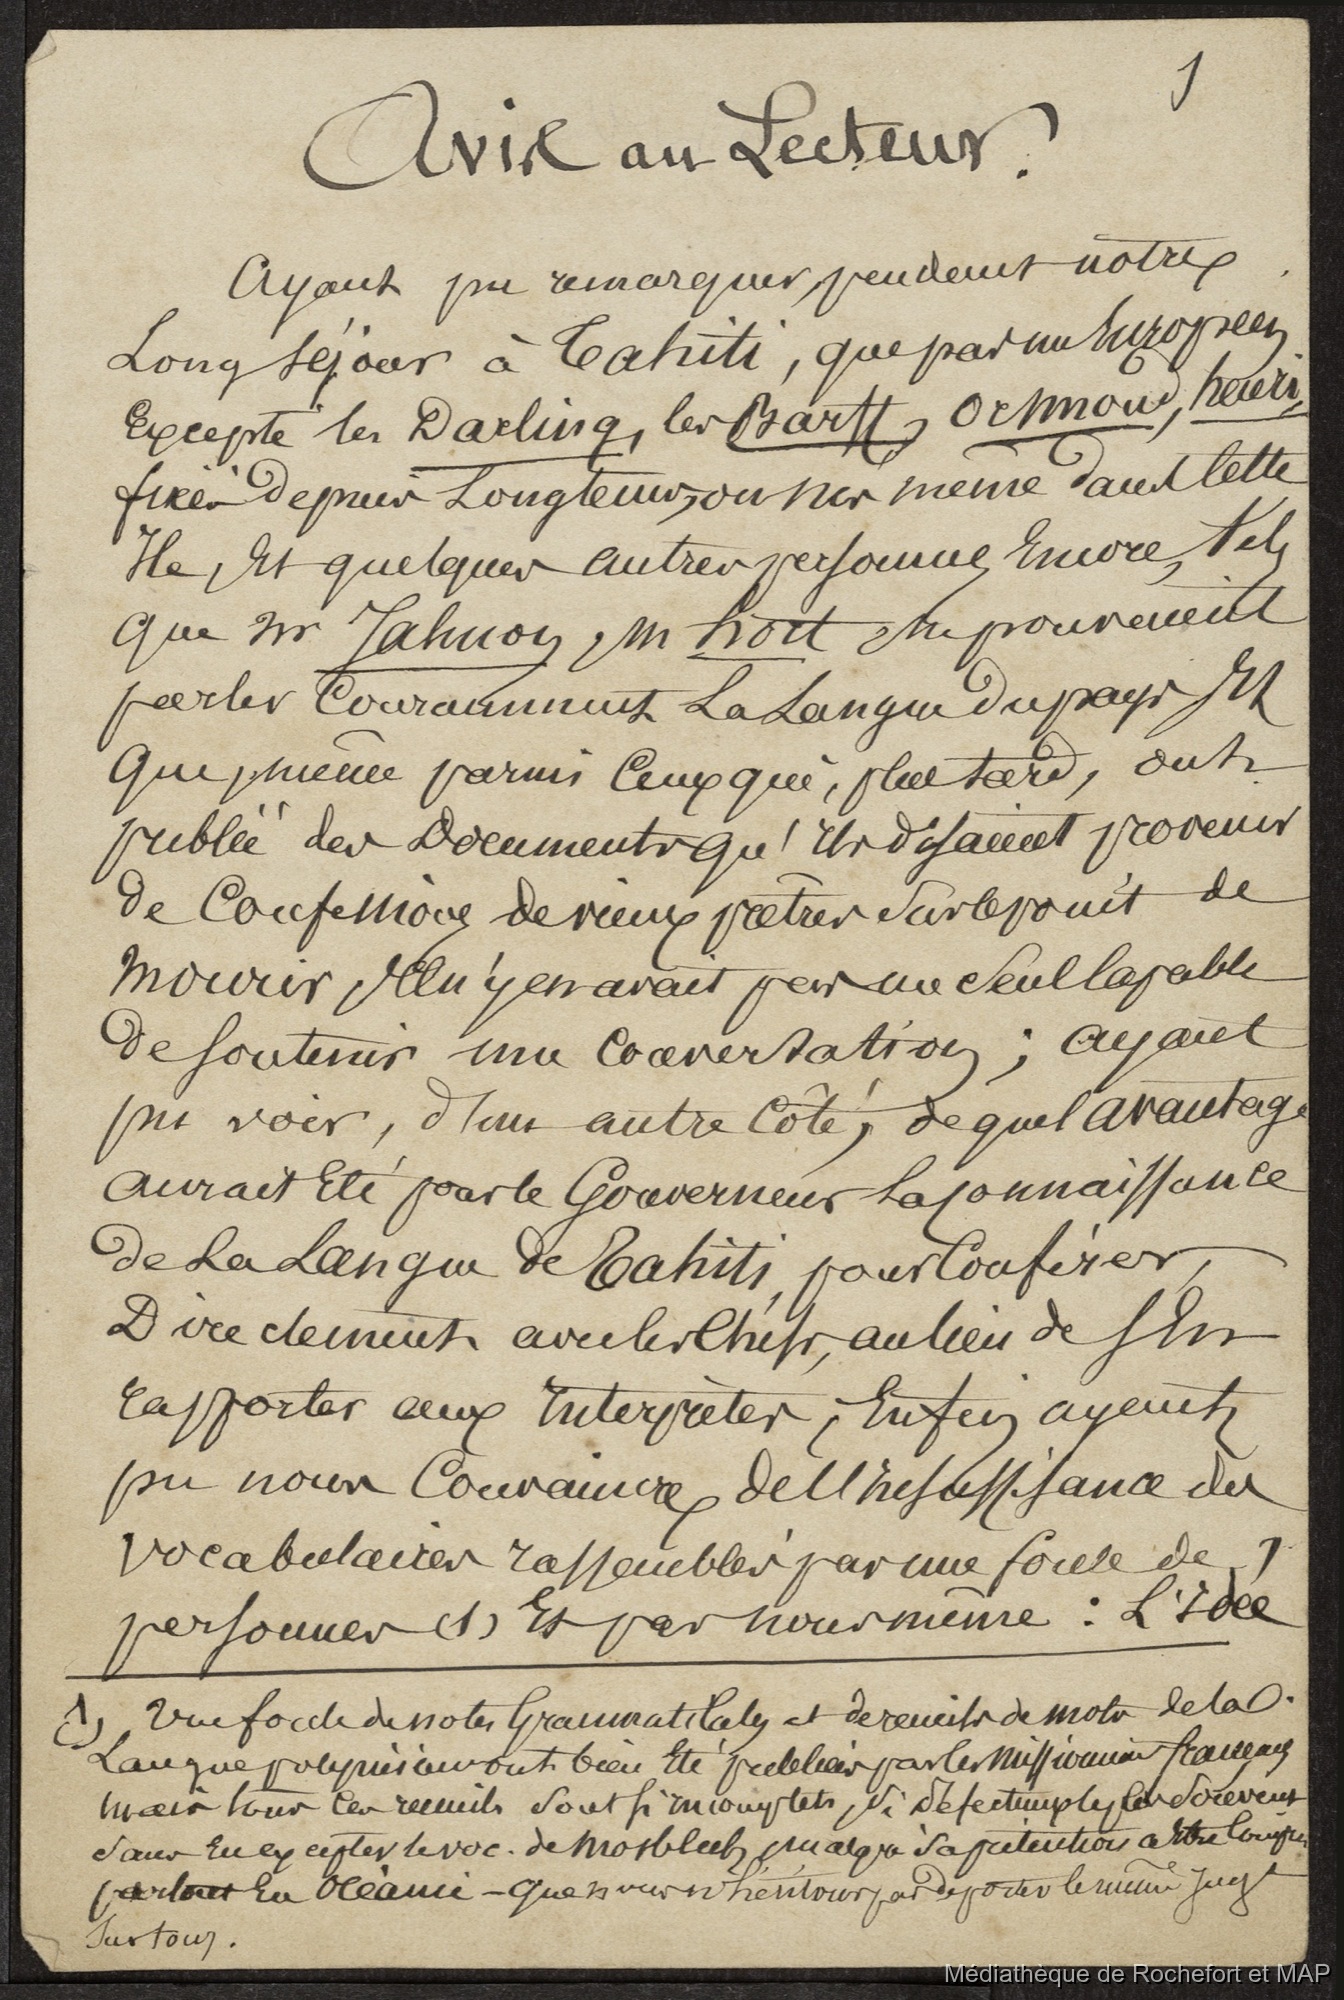 1
Avis au Lecteur.
Ayant pu remarquer, pendant notre
Long séjour à Tahiti, que pas un Européen
Excepté les Darling, les Barff, Orsmond, henri,
fixés depuis Longtems, ou nés même dans Cette
Ile, Et quelques autres personnes Encore, tels
que Mr Johnson, M hort, ne pouvaient
parler Couramment La Langue du pays Et
que, même parmi Ceux qui, plus tard, ont
publié des Documents qu'ils disaient provenir
de Confessions de vieux prêtres sur le point de
Mourir, Il n'y en avait pas un seul Capable
de soutenir une Conversation ; ayant
pu voir, d'un autre Côté, de quel avantage
aurait Eté pour le Gouverneur La Connaissance
de La Langue de Tahiti, pour Conférer,
Directement avec les Chefs, au lieu de s'En
rapporter aux Interprètes ; Enfin ayant
pu nous Convaincre de l'Insuffisance des
vocabulaires rassemblés par une foule de
personnes (1) Et par nous même : L'Idée
1) Une foule de notes Grammaticales et de recueils de mots de la
Langue polynésienne ont bien Eté publiées par les Missionnaires français
mais tous ces recueils sont si incomplets, si défectueux le plus souvent
sans En excepter le voc. de Mosblech, malgré sa prétention a Etre Compris
partout En Océanie - que nous n'hésitons pas de porter le même Jugt
sur tous.
Médiathèque de Rochefort et MAP